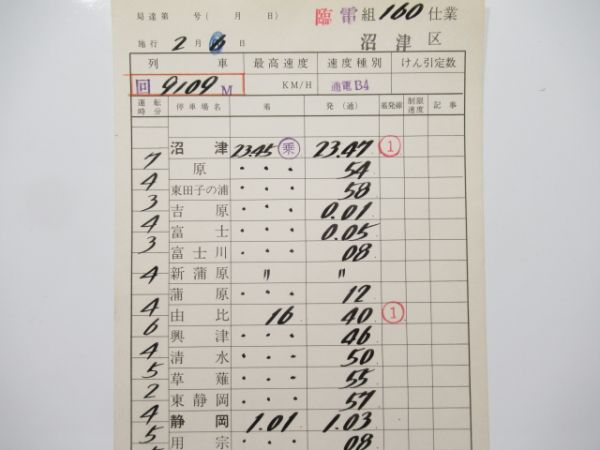 局達第 号(月 日) 臨電組160仕業
施行 2月6日 沼津区
列 車 最高速度 速度種別 けん引定数
回9109M KM/H 通電B4
運転時分 停車場名 着 発(通) 着発線 制限速度 記事
沼津 23.45 乗 23.47 1
7
原 ・・・ 54
4
東田子の浦 ・・・ 58
3
吉原 ・・・ 0.01
4
富士 ・・・ 0.05
3
富士川 ・・・ 08
新蒲原 〃 〃
4
蒲原 ・・・ 12
4
由比 16 40 1
6
興津 ・・・ 46
4
清水 ・・・ 50
5
草薙 ・・・ 55
2
東静岡 ・・・ 57
4
静岡 1.01 1.03
5
用宗 ・・・ 08
5